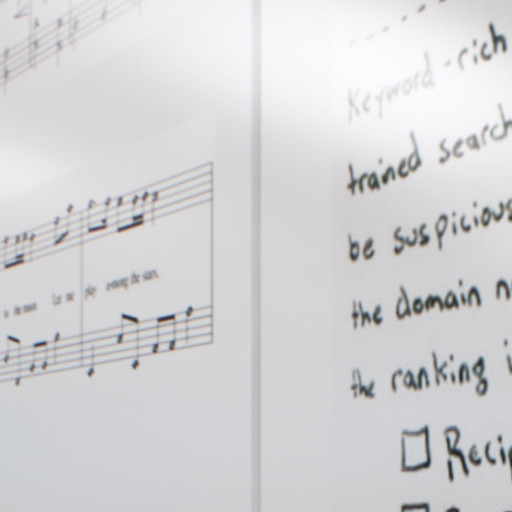 to the moon Let me play among the stars,
Keyword-rich
trained search
be suspicious
the domain
the ranking
Recip